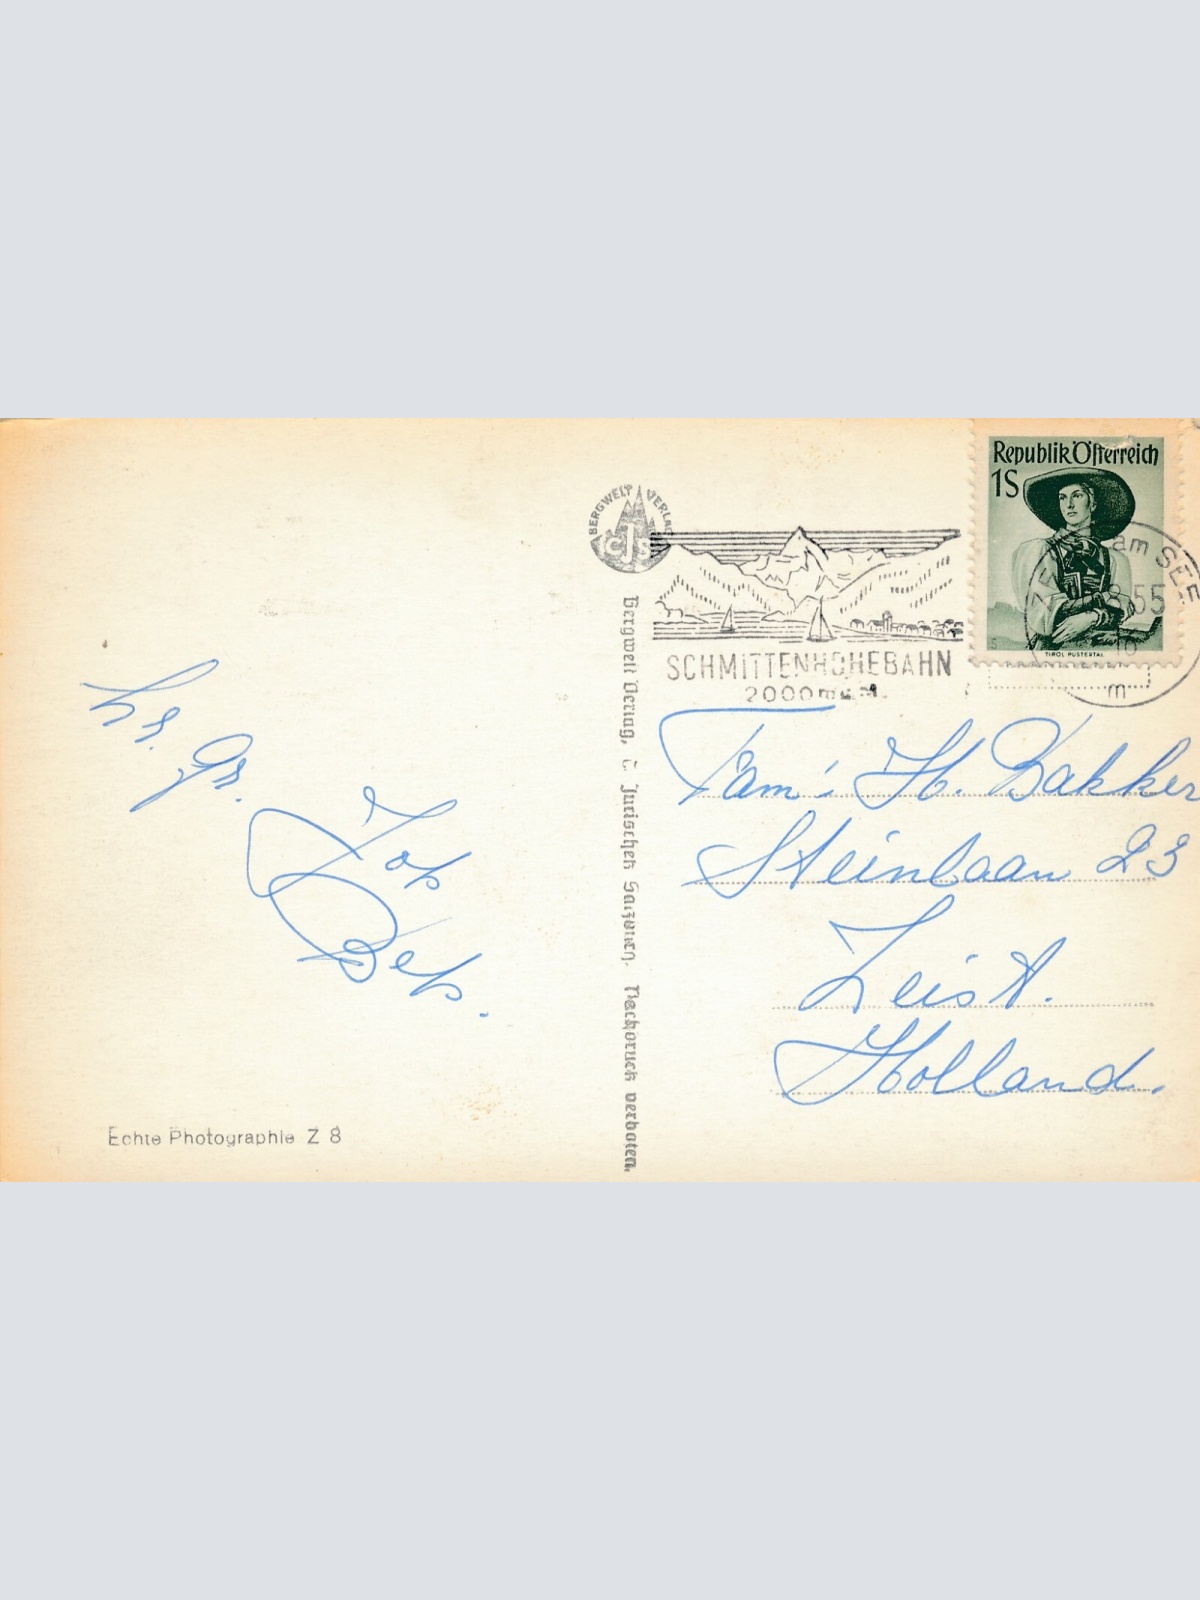 BERGWELT VERLAG
CJS
Republik Österreich
1S
TIROL PUSTERTAL
ZELL am SEE
8.55
m
SCHMITTENHÖHEBAHN
2000 m ü. M.
Bergwelt Verlag, C. Jurischek Salzburg. Nachdruck verboten.
Hr. gr.
Jop
Bep.
Fam: H. Bakker
Steinlaan 23
Zeist.
Holland.
Echte Photographie Z 8